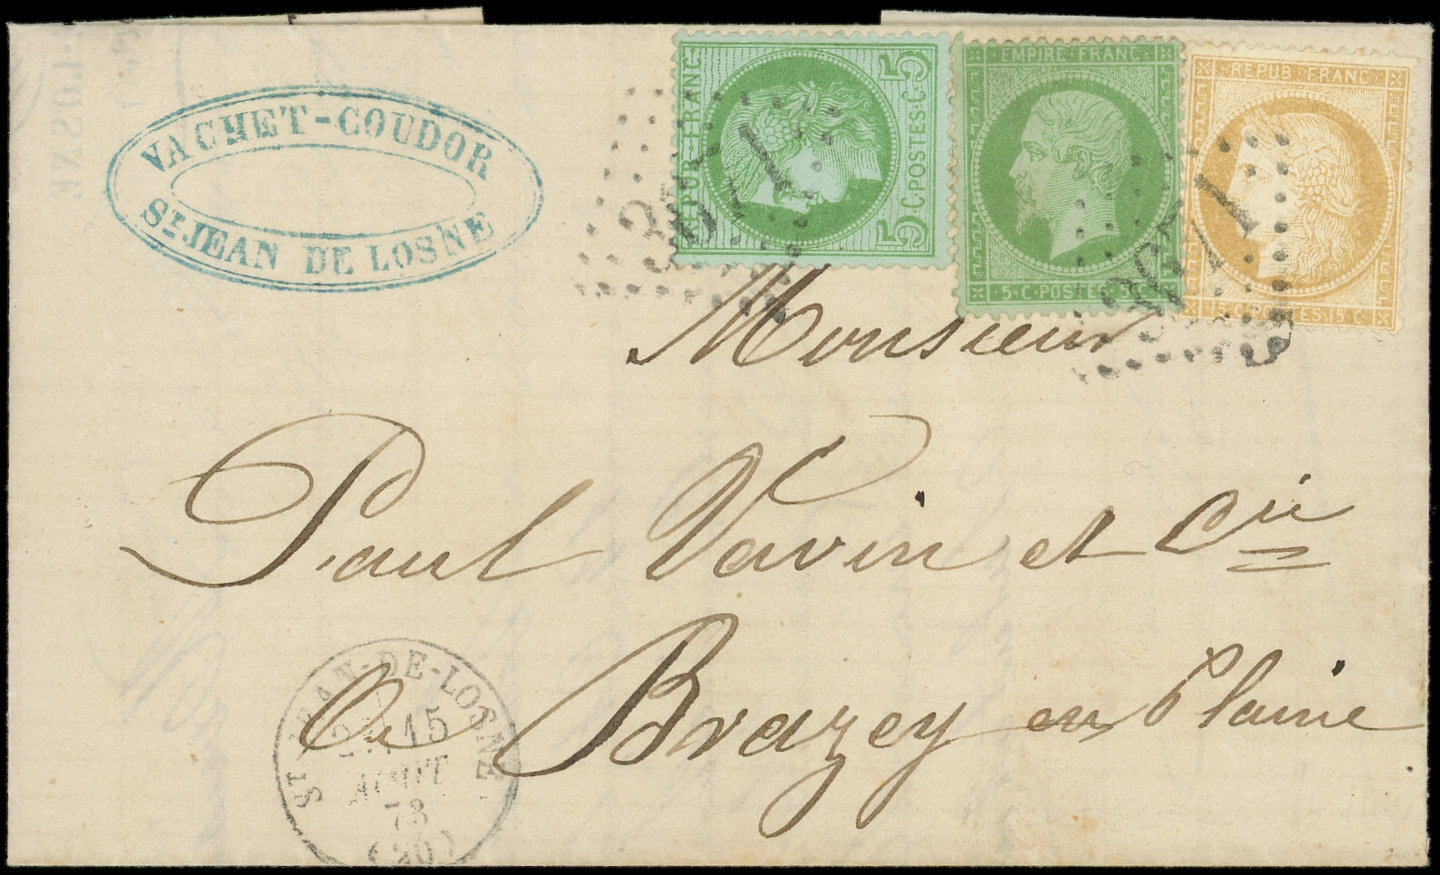 VACHET-COUDOR
ST JEAN DE LOSNE
REPUB·FRANC
5 C·POSTES·C·5
EMPIRE·FRANC
5·C·POSTES·5·C
REPUB·FRANC
15·C·POSTES·15·C
Monsieur
Paul Vavin et Cie
à Brazey en Plaine
ST JEAN-DE-LOSNE
15
AOUT
73
(20)